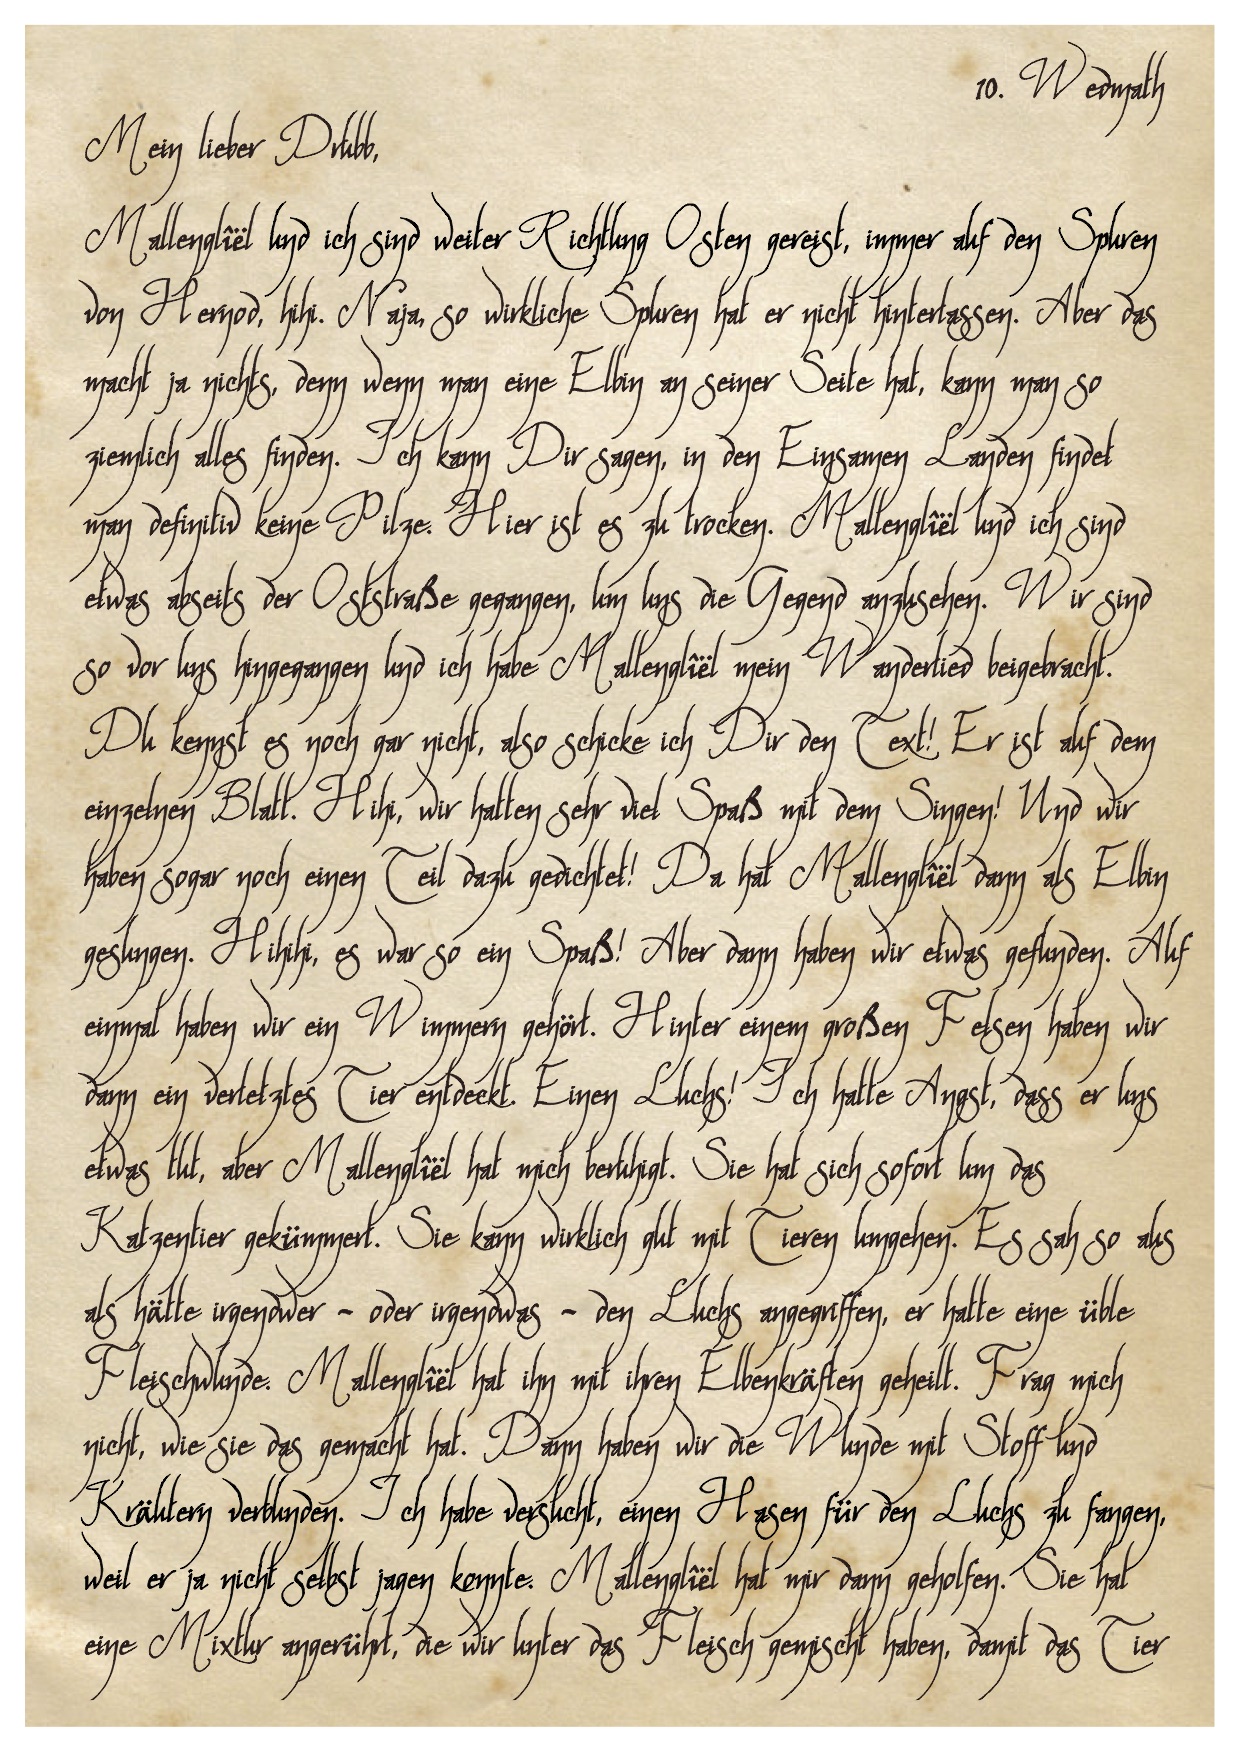 10. Wedmath
Mein lieber Drubb,
Mallenglîël und ich sind weiter Richtung Osten gereist, immer auf den Spuren
von Hernod, hihi. Naja, so wirkliche Spuren hat er nicht hinterlassen. Aber das
macht ja nichts, denn wenn man eine Elbin an seiner Seite hat, kann man so
ziemlich alles finden. Ich kann Dir sagen, in den Einsamen Landen findet
man definitiv keine Pilze. Hier ist es zu trocken. Mallenglîël und ich sind
etwas abseits der Oststraße gegangen, um uns die Gegend anzusehen. Wir sind
so vor uns hingegangen und ich habe Mallenglîël mein Wanderlied beigebracht.
Du kennst es noch gar nicht, also schicke ich Dir den Text! Er ist auf dem
einzelnen Blatt. Hihi, wir hatten sehr viel Spaß mit dem Singen! Und wir
haben sogar noch einen Teil dazu gedichtet! Da hat Mallenglîël dann als Elbin
gesungen. Hihihi, es war so ein Spaß! Aber dann haben wir etwas gefunden. Auf
einmal haben wir ein Wimmern gehört. Hinter einem großen Felsen haben wir
dann ein verletztes Tier entdeckt. Einen Luchs! Ich hatte Angst, dass er uns
etwas tut, aber Mallenglîël hat mich beruhigt. Sie hat sich sofort um das
Katzentier gekümmert. Sie kann wirklich gut mit Tieren umgehen. Es sah so aus
als hätte irgendwer - oder irgendwas - den Luchs angegriffen, er hatte eine üble
Fleischwunde. Mallenglîël hat ihn mit ihren Elbenkräften geheilt. Frag mich
nicht, wie sie das gemacht hat. Dann haben wir die Wunde mit Stoff und
Kräutern verbunden. Ich habe versucht, einen Hasen für den Luchs zu fangen,
weil er ja nicht selbst jagen konnte. Mallenglîël hat mir dann geholfen. Sie hat
eine Mixtur angerührt, die wir unter das Fleisch gemischt haben, damit das Tier